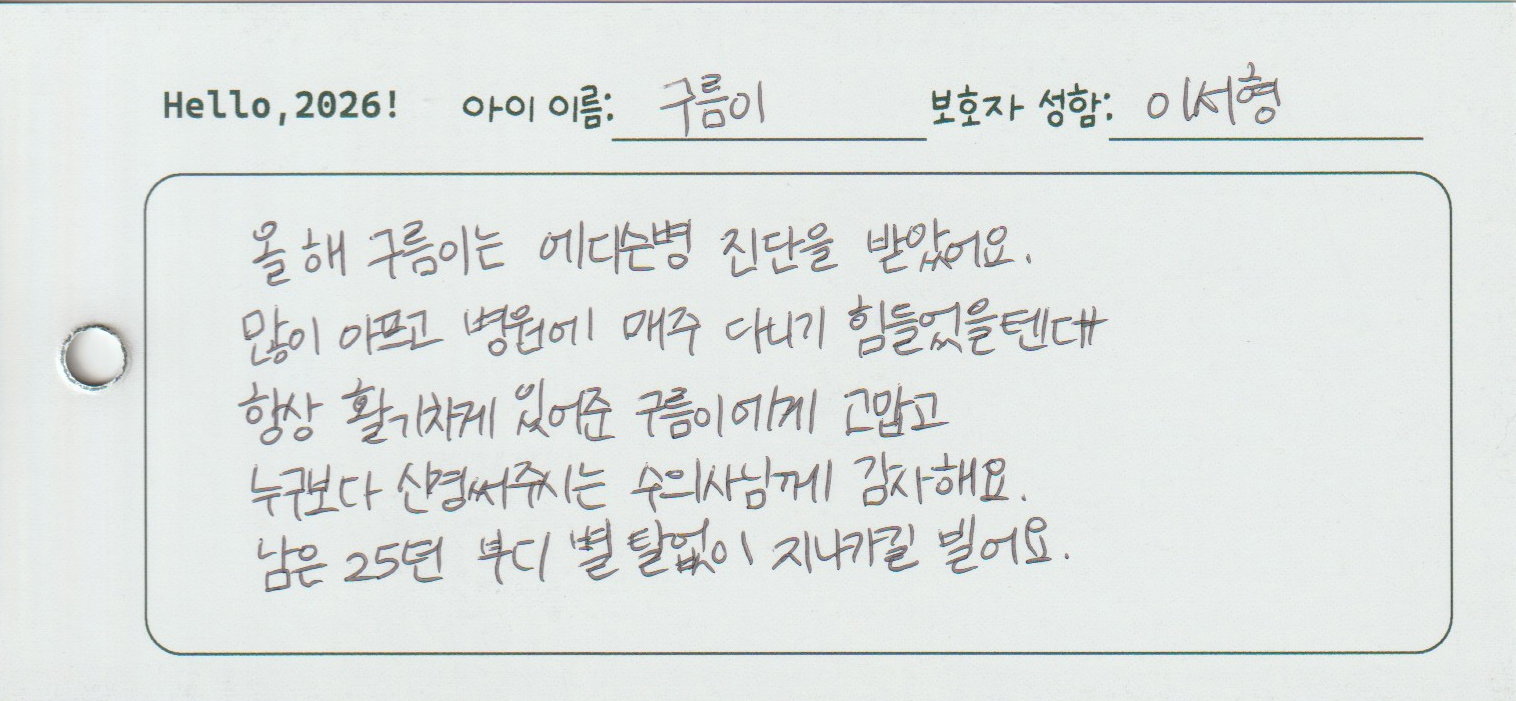 Hello,2026! 아이 이름: 구름이 보호자 성함: 이서형
올해 구름이는 에디슨병 진단을 받았어요.
많이 아프고 병원에 매주 다니기 힘들었을텐데
항상 활기차게 있어준 구름이에게 고맙고
누구보다 신경써주시는 수의사님께 감사해요.
남은 25년 부디 별 탈없이 지나가길 빌어요.